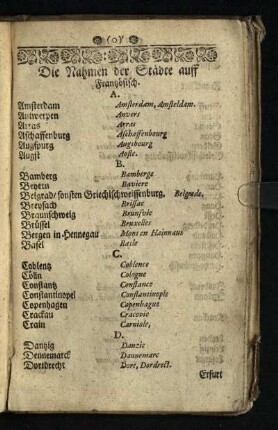 (o)
Die Nahmen der Städte auff
Frantzösisch.
A.
Amsterdam Amsterdam, Amsteldam.
Antwerpen Anvers
Arras Arras
Aschaffenburg Aschaffenbourg
Augspurg Augsbourg
Augst Aoste.
B.
Bamberg Bamberge
Beyern Baviere
Belgrad/ sonsten Griechischweissenburg. Belgrade,
Breysach Brissac
Braunschweig Brunsvic
Brüssel Bruxelles
Bergen in Hennegau Mons en Hainnaut
Basel Basle
C.
Coblentz Coblence
Cölln Cologne
Constantz Constance
Constantinopel Constantinople
Copenhagen Copenhague
Crackau Cracovie
Crain Carniole,
D.
Dantzig Danzic
Dennemarck Dannemarc
Dortrecht Dort, Dordrect.
Erfurt